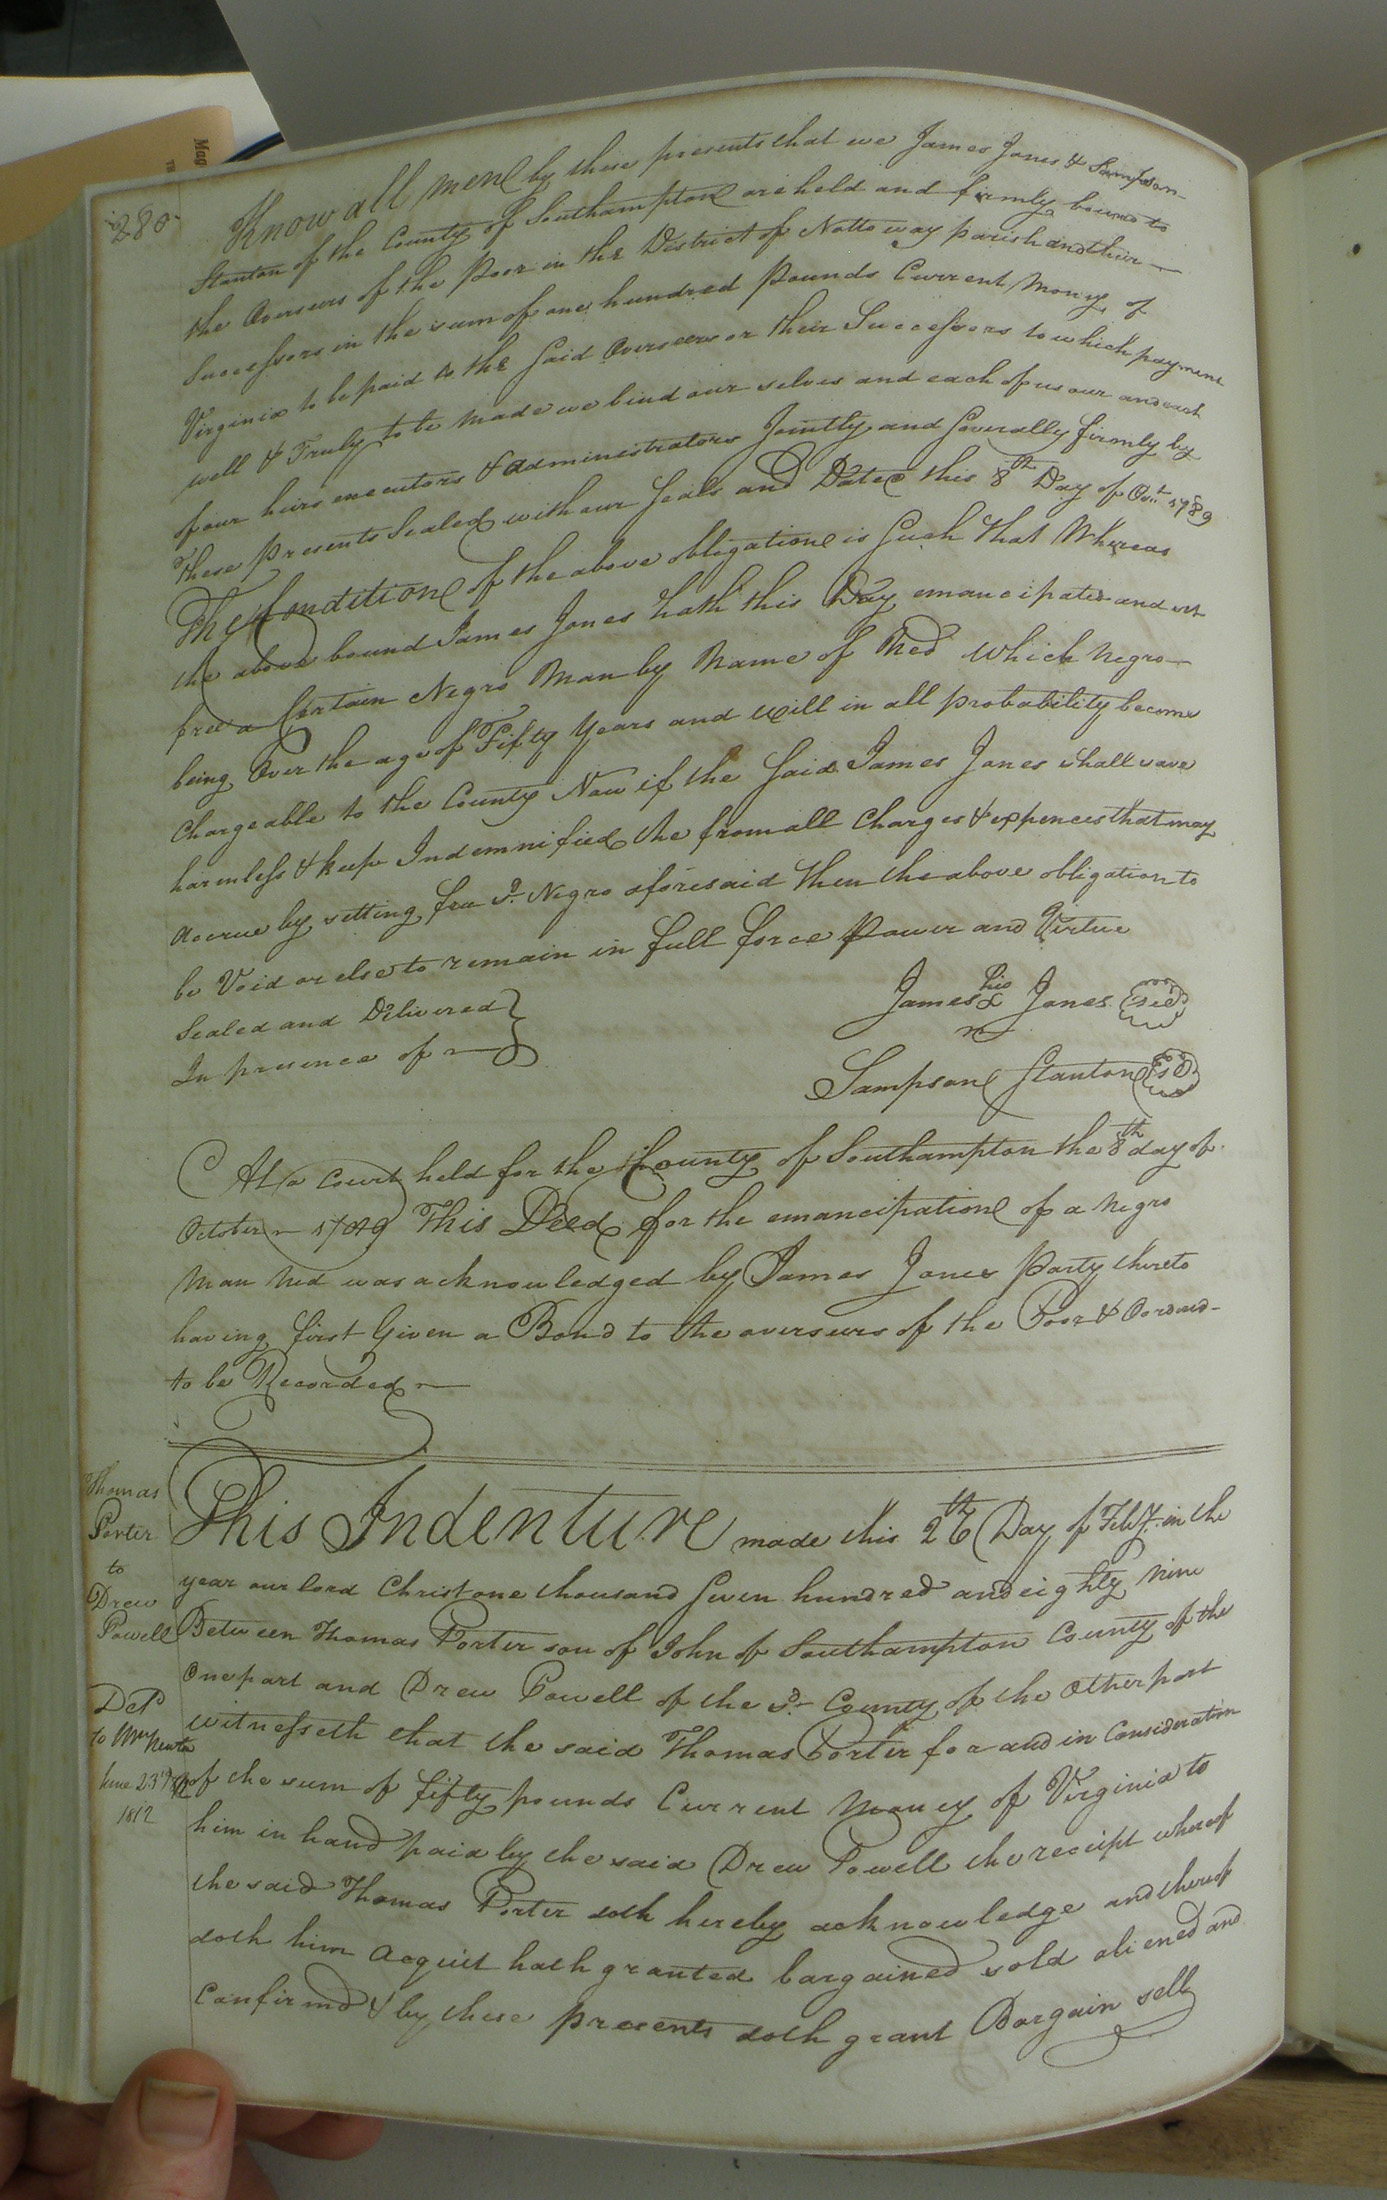 280
Know all men by these presents that we James Jones & Sampson
Stanton of the County of Southampton are held and firmly bound to
the Overseers of the Poor in the District of Nottoway parish and their
Successors in the sum of one hundred pounds Current Money of
Virginia to be paid to the Said Overseers or their Successors to which payment
well & Truly to be made we bind our selves and each of us our and each
of our heirs executors & administrators Jointly and Severally firmly by
these presents Sealed with our Seals and Dated this 8th Day of Octr. 1789
The Condition of the above obligation is Such that Whereas
the above bound James Jones hath this Day emancipated and set
free a Certain Negro Man by Name of Ned which Negro
being Over the age of Fifty Years and will in all probability become
Chargeable to the County Now if the Said James Jones shall save
harmless & keep Indemnified the from all Charges & expences that may
Accrue by setting free sd. Negro aforesaid then the above obligation to
be Void or else to remain in full force Power and Virtue
Sealed and Delivered
In presence of
James his Jones
Sampson Stanton
At a Court held for the County of Southampton the 8th day of
October 1789 This Deed for the emancipation of a Negro
Man Ned was acknowledged by James Jones Party thereto
having first Given a Bond to the overseers of the Poor &
to be Recorded
Thomas
Porter
to
Drew
Powell
Deld
to
June 23rd
1812
This Indenture made this 26th Day of Feby. in the
year our lord Christ one thousand Seven hundred and eighty Nine
Between Thomas Porter son of John of Southampton County of the
One part and Drew Powell of the sd. County of the Other part
witnesseth that the said Thomas Porter for and in Consideration
of the sum of fifty pounds Current Money of Virginia to
him in hand paid by the said Drew Powell the receipt whereof
the said Thomas Porter doth hereby acknowledge and thereof
doth him Acquit hath granted bargained sold aliened and
Confirmd & by these presents doth grant Bargain sell